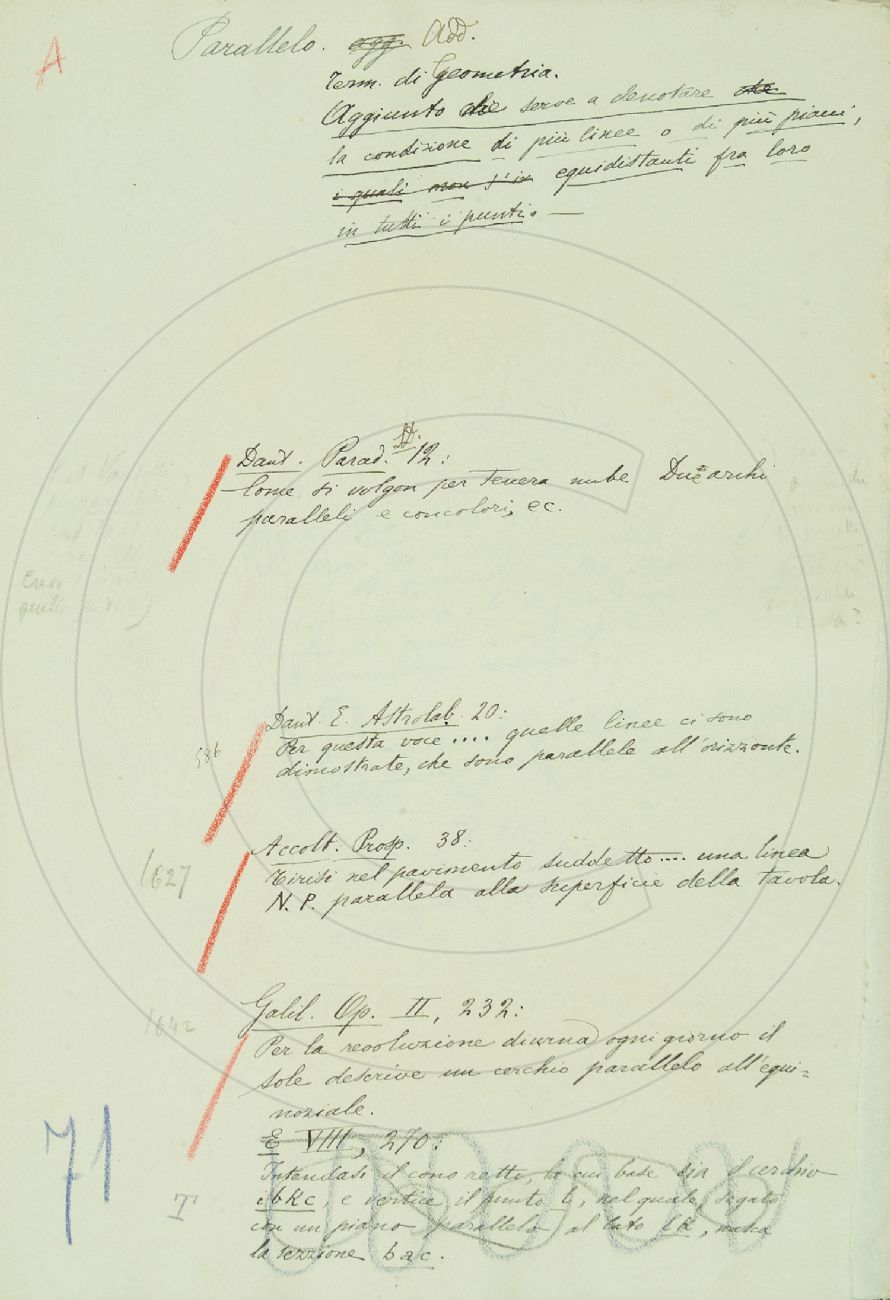 A
Parallelo. agg. Add.
Term. di Geometria.
Aggiunto che serve a denotare che
la condizione di più linee o di più piani,
i quali non s'in equidistanti fra loro
in tutti i punti. —
Dant. Parad. 12:
Come si volgon per tenera nube Due archi
paralleli e concolori, ec.
Dant. E. Astrolab. 20:
586
Per questa voce .... quelle linee ci sono
dimostrate, che sono parallele all'orizzonte.
Accolt. Prosp. 38:
1627
Tirisi nel pavimento suddetto .... una linea
N. P. parallela alla superficie della tavola.
Galil. Op. II, 232:
1642
Per la revoluzione diurna ogni giorno il
sole descrive un cerchio parallelo all'equi=
noziale.
E VIII, 270:
Intendasi il cono retto, la cui base sia il cerchio
ibkc, e vertice il punto l, nel quale, segato
con un piano parallelo al lato lk, nasca
la sezzione bac.
71
T